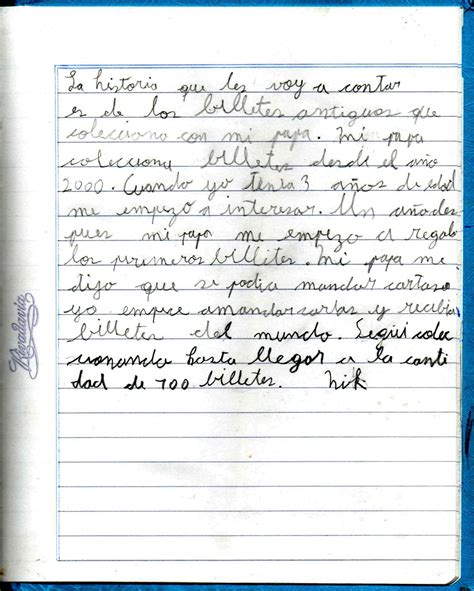 La historia que les voy a contar
es de los billetes antiguos que
colecciono con mi papa. Mi papa
colecciona billetes desde el año
2000. Cuando yo tenia 3 años de edad
me empezo a interesar. Un año des
pues mi papa me empezo a regalar
los primeros billetes. Mi papa me
dijo que se podia mandar cartas
yo empice a mandar cartas y recibia
billetes del mundo. Segui colec
cionando hasta llegar a la canti
dad de 700 billetes. Nik
Rivadavia